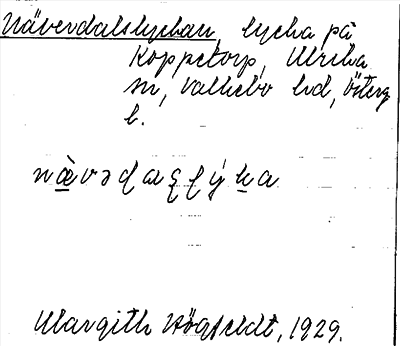 Näverdalslyckan, lycka på
Koppetorp, Ulrika
sn, Valkebo hd, Österg
l.
nævədaʂɭýka
Margith Högfeldt, 1929.